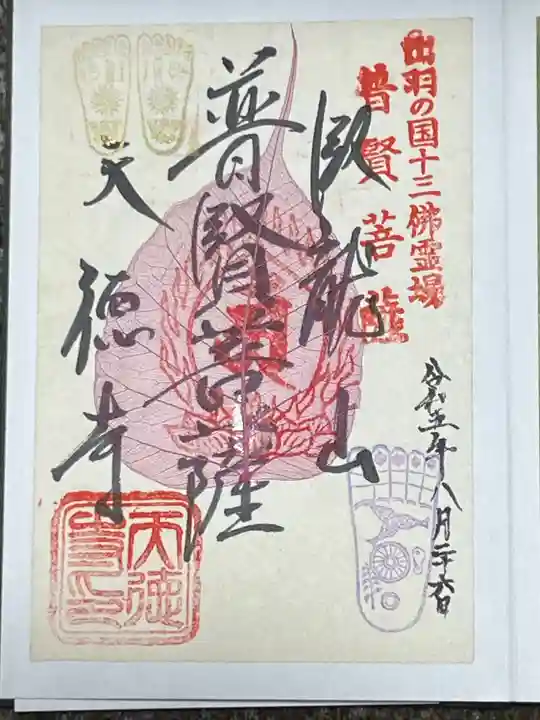 出羽の国十三佛霊場
普賢菩薩
令和五年八月二十六日
臥龍山
普賢菩薩
天徳寺
天徳